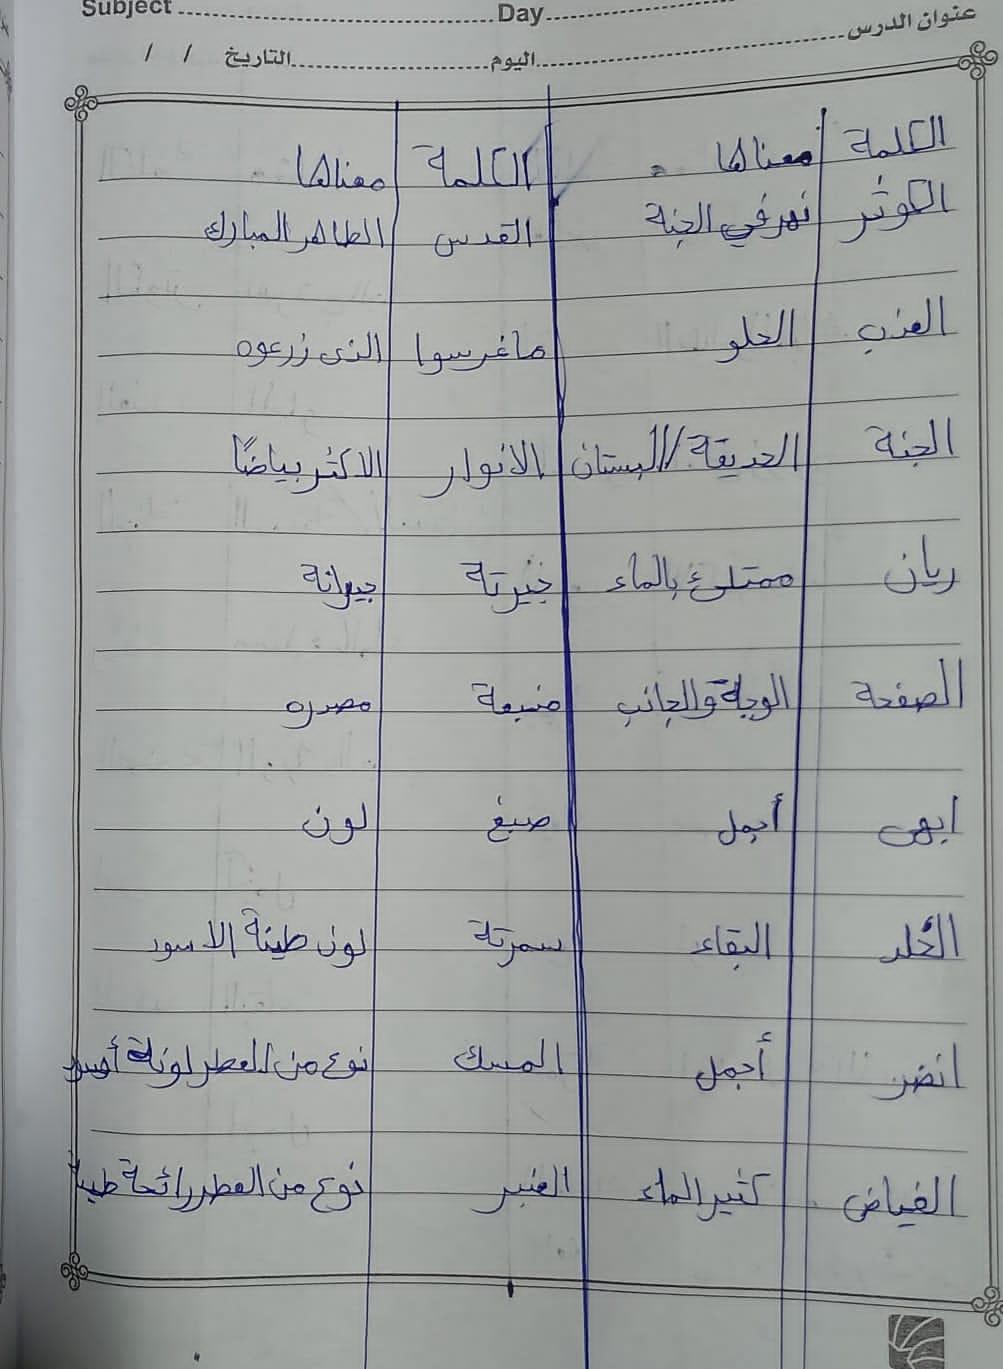 Subject Day عنوان الدرس
اليوم التاريخ / /
الكلمة معناها الكلمة معناها
الكوثر نهر في الجنة القدس الطاهر المبارك
العذب الحلو ماغرسوا الذى زرعوه
الجنة الحديقة/البستان الانوار الاكثر بياضًا
ريان ممتلئ بالماء جيرتة جيرانة
الصفحة الوجة والجانب منبعة مصدره
ابهى أجمل صبغ لون
الخُلد البقاء سمرتة لون طينة الاسود
انضر أجمل المسك نوع من العطر لونة أسود
الفياض كثير الماء العنبر نوع من العطر رائحة طيبة